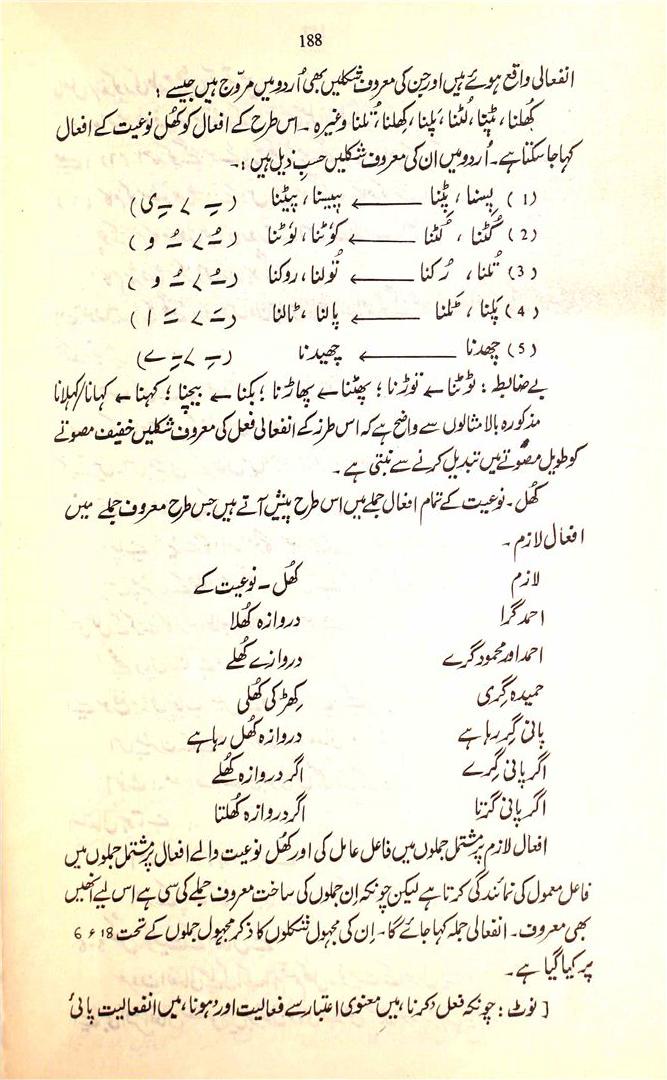 188
انفعالی واقع ہوئے ہیں اور جن کی معروف شکلیں بھی اُردو میں مروّج ہیں جیسے :
کُھلنا، پٹنا، لُٹنا، پَلنا، کِھلنا، تُلنا وغیرہ ۔ اس طرح کے افعال کو کُھل نوعیت کے افعال
کہا جا سکتا ہے۔ اُردو میں ان کی معروف شکلیں حسبِ ذیل ہیں :۔
(1) پِسنا، پِٹنا ← پیسنا، پیٹنا (ـِ > ـِ ی)
(2) کُٹنا، لُٹنا ← کوٗٹنا، لوٗٹنا (ـُ > ـُ و)
(3) تُلنا، رُکنا ← تولنا، روکنا (ـُ > ـُ و)
(4) پَلنا، ٹَلنا ← پالنا، ٹالنا (ـَ > ـَ ا)
(5) چِھدنا ← چھیدنا (ـِ > ـِ ے)
بے ضابطہ : ٹوٹنا ← توڑنا ؛ پھٹنا ← پھاڑنا ؛ بکنا ← بیچنا ؛ کہنا ← کہانا/کہلانا
مذکورہ بالا مثالوں سے واضح ہے کہ اس طرز کے انفعالی فعل کی معروف شکلیں خفیف مصوتے
کو طویل مصوتے میں تبدیل کرنے سے بنتی ہے ۔
کُھل ۔ نوعیت کے تمام افعال جملے میں اس طرح پیش آتے ہیں جس طرح معروف جملے میں
افعال لازم ۔
لازم کُھل ۔ نوعیت کے
احمد گرا دروازہ کُھلا
احمد اور محمود گرے دروازے کُھلے
حمیدہ گِری کِھڑکی کُھلی
پانی گِر رہا ہے دروازہ کُھل رہا ہے
اگر پانی گِرے اگر دروازہ کُھلے
اگر پانی گرتا اگر دروازہ کُھلتا
افعال لازم پر مشتمل جملوں میں فاعل عامل کی اور کُھل نوعیت والے افعال پر مشتمل جملوں میں
فاعل معمول کی نمائندگی کرتا ہے لیکن چونکہ اِن جملوں کی ساخت معروف جملے کی سی ہے اس لیے انھیں
بھی معروف ۔ انفعالی جملہ کہا جائے گا۔ اِن کی مجہول شکلوں کا ذکر مجہول جملوں کے تحت 18ء6
پر کیا گیا ہے ۔
[ نوٹ : چونکہ فعل 'کرنا' میں معنوی اعتبار سے فعالیت اور 'ہونا' میں انفعالیت پائی